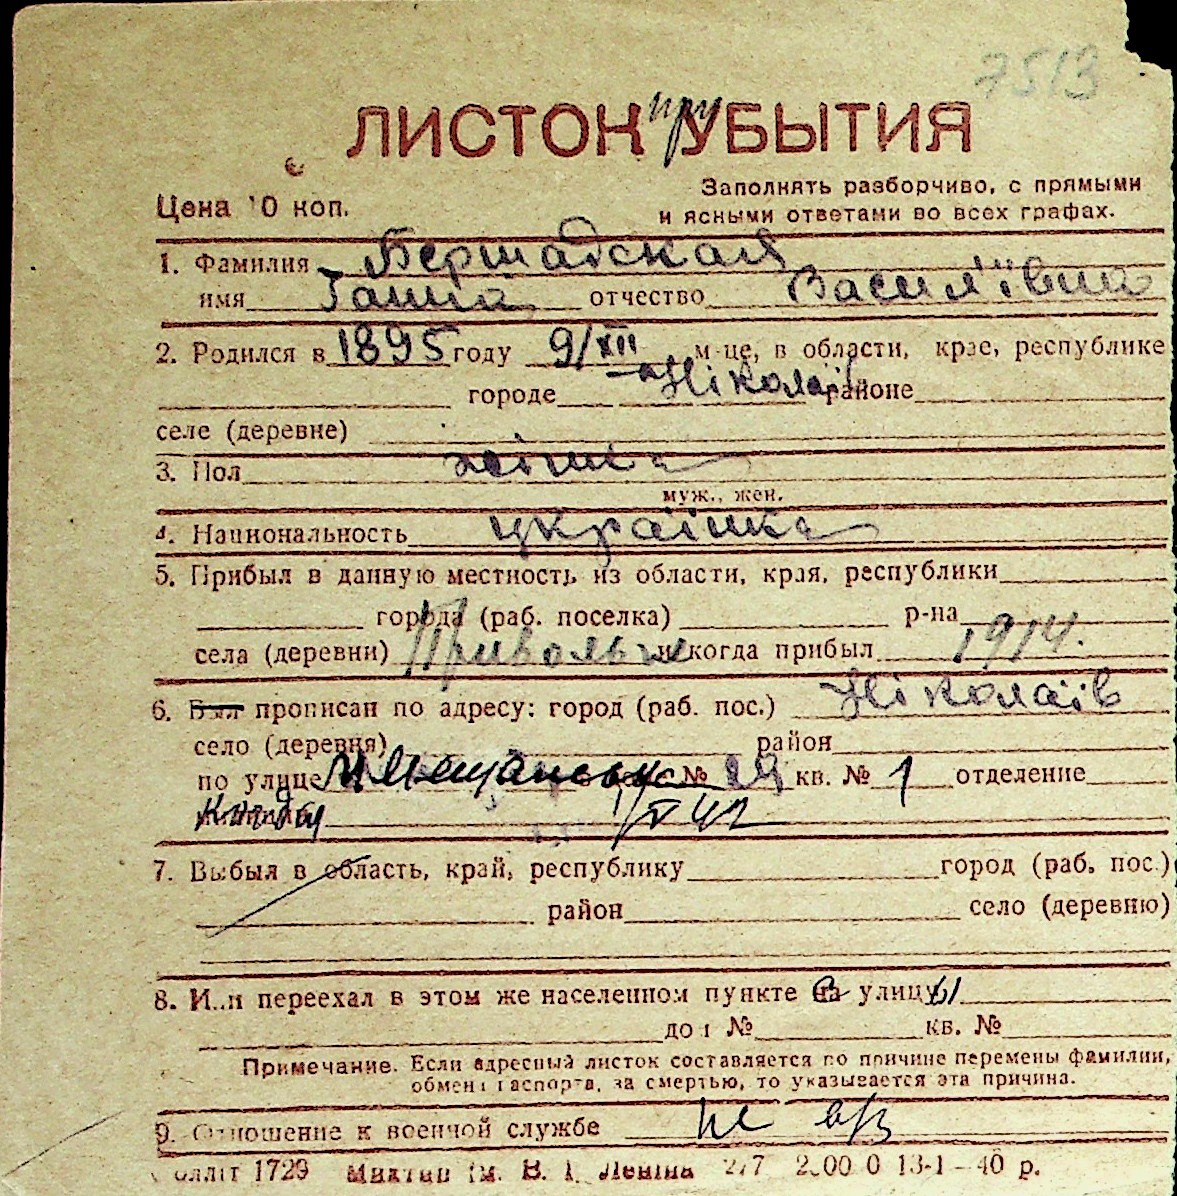 7513
ЛИСТОК при УБЫТИЯ
Цена 10 коп.
Заполнять разборчиво, с прямыми
и ясными ответами во всех графах.
1. Фамилия Бершадская
имя Ганна отчество Василівна
2. Родился в 1895 году 9/XII м-це, в области, крае, республике
городе Ніколаїв районе
селе (деревне)
3. Пол жінка
муж., жен.
4. Национальность українка
5. Прибыл в данную местность из области, края, республики
города (раб. поселка) р-на
села (деревни) Привольн когда прибыл 1914.
6. Был прописан по адресу: город (раб. пос.) Ніколаїв
село (деревня) район
по улице М Мещанську № 29 кв. № 1 отделение
милиции
7. Выбыл в область, край, республику город (раб. пос.)
район село (деревню)
8. Или переехал в этом же населенном пункте на улицы
дом № кв. №
Примечание. Если адресный листок составляется по причине перемены фамилии,
обмена паспорта, за смертью, то указывается эта причина.
9. Отношение к военной службе не в/з
1729 Ленина 13-1-40 р.